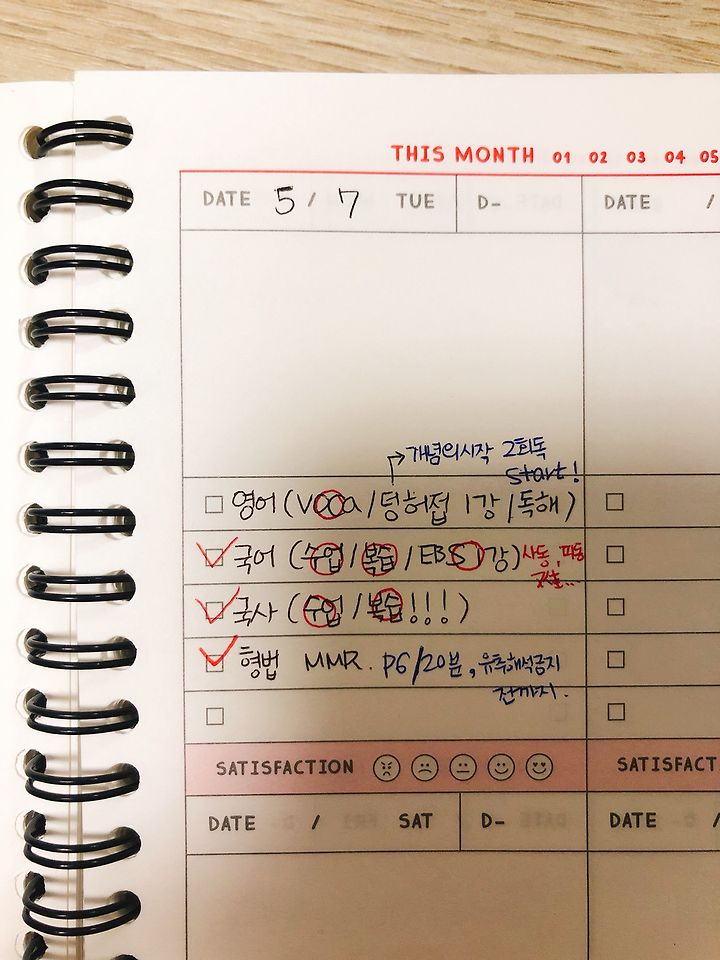 THIS MONTH 01 02 03 04 05
DATE 5 / 7 TUE D- DATE /
개념의시작 2회독
start!
영어 (voca / 덩허접 1강 / 독해)
국어 (수업 / 복습 / EBS 1강) 사동, 피동
국사 (수업 / 복습!!!)
형법 MMR. p6/20분, 유추해석금지
전까지.
SATISFACTION SATISFACT
DATE / SAT D- DATE /